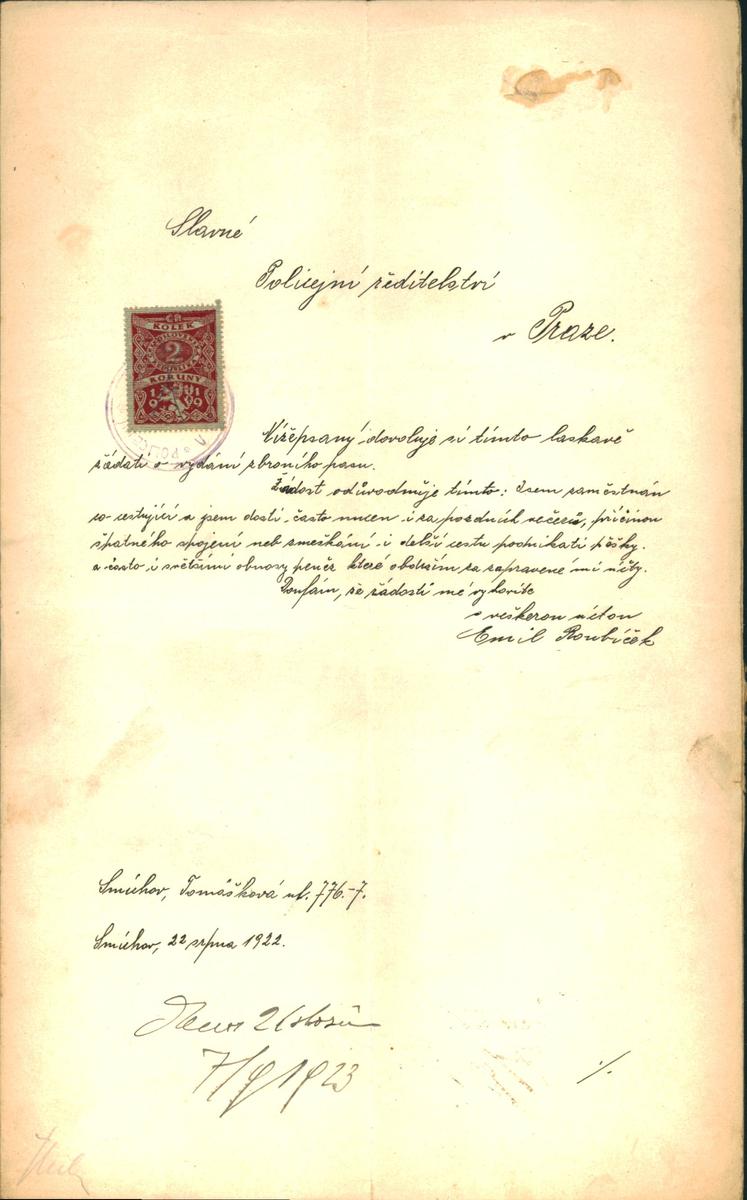 Slavné
Policejní ředitelství
v Praze.
ČR
KOLEK
ČESKOSLOVENSKÁ
2
REPUBLIKA
KORUNY
1919
POLICEJNÍ
Nížepsaný dovoluje si tímto laskavě
žádati o vydání zbroního pasu.
Žádost odůvodnuje tímto: Jsem zaměstnán
co cestující a jsem dosti často nucen i za pozdních večerů, příčinou
špatného spojení neb zmeškání i delší cestu podnikati pěšky.
a často i s většími obnosy peněz které obdržím za zapravené mi účty.
Doufám, že žádosti mé vyhovíte
s veškerou úctou
Emil Roubíček
Smíchov, Tomášková ul. 776.-7.
Smíchov, 22 srpna 1922.
7/9 1923
·/.